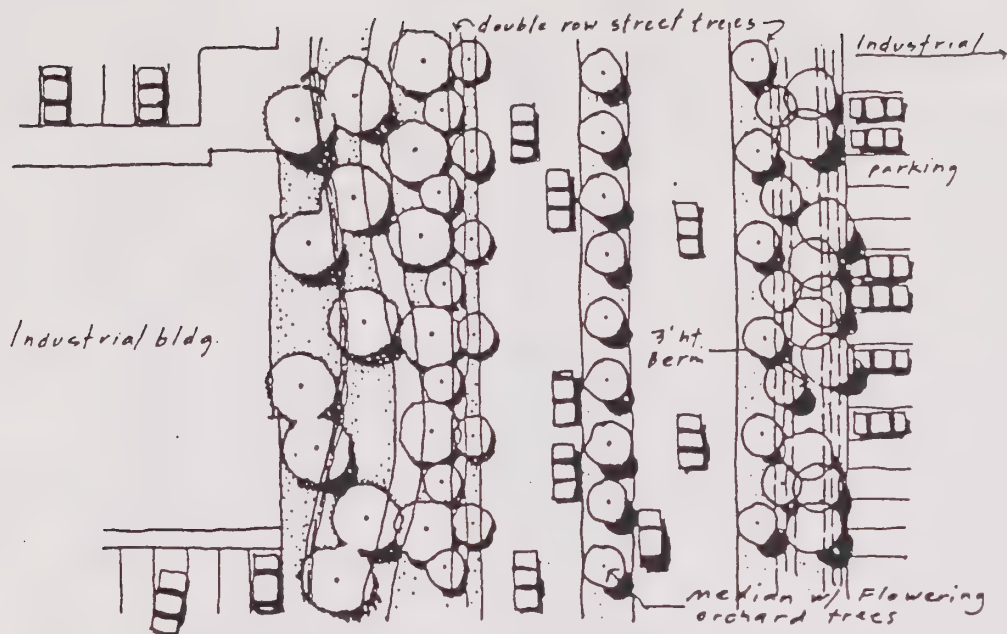 double row street trees
Industrial
parking
Industrial bldg.
3' ht.
Berm
median w/ Flowering
orchard trees